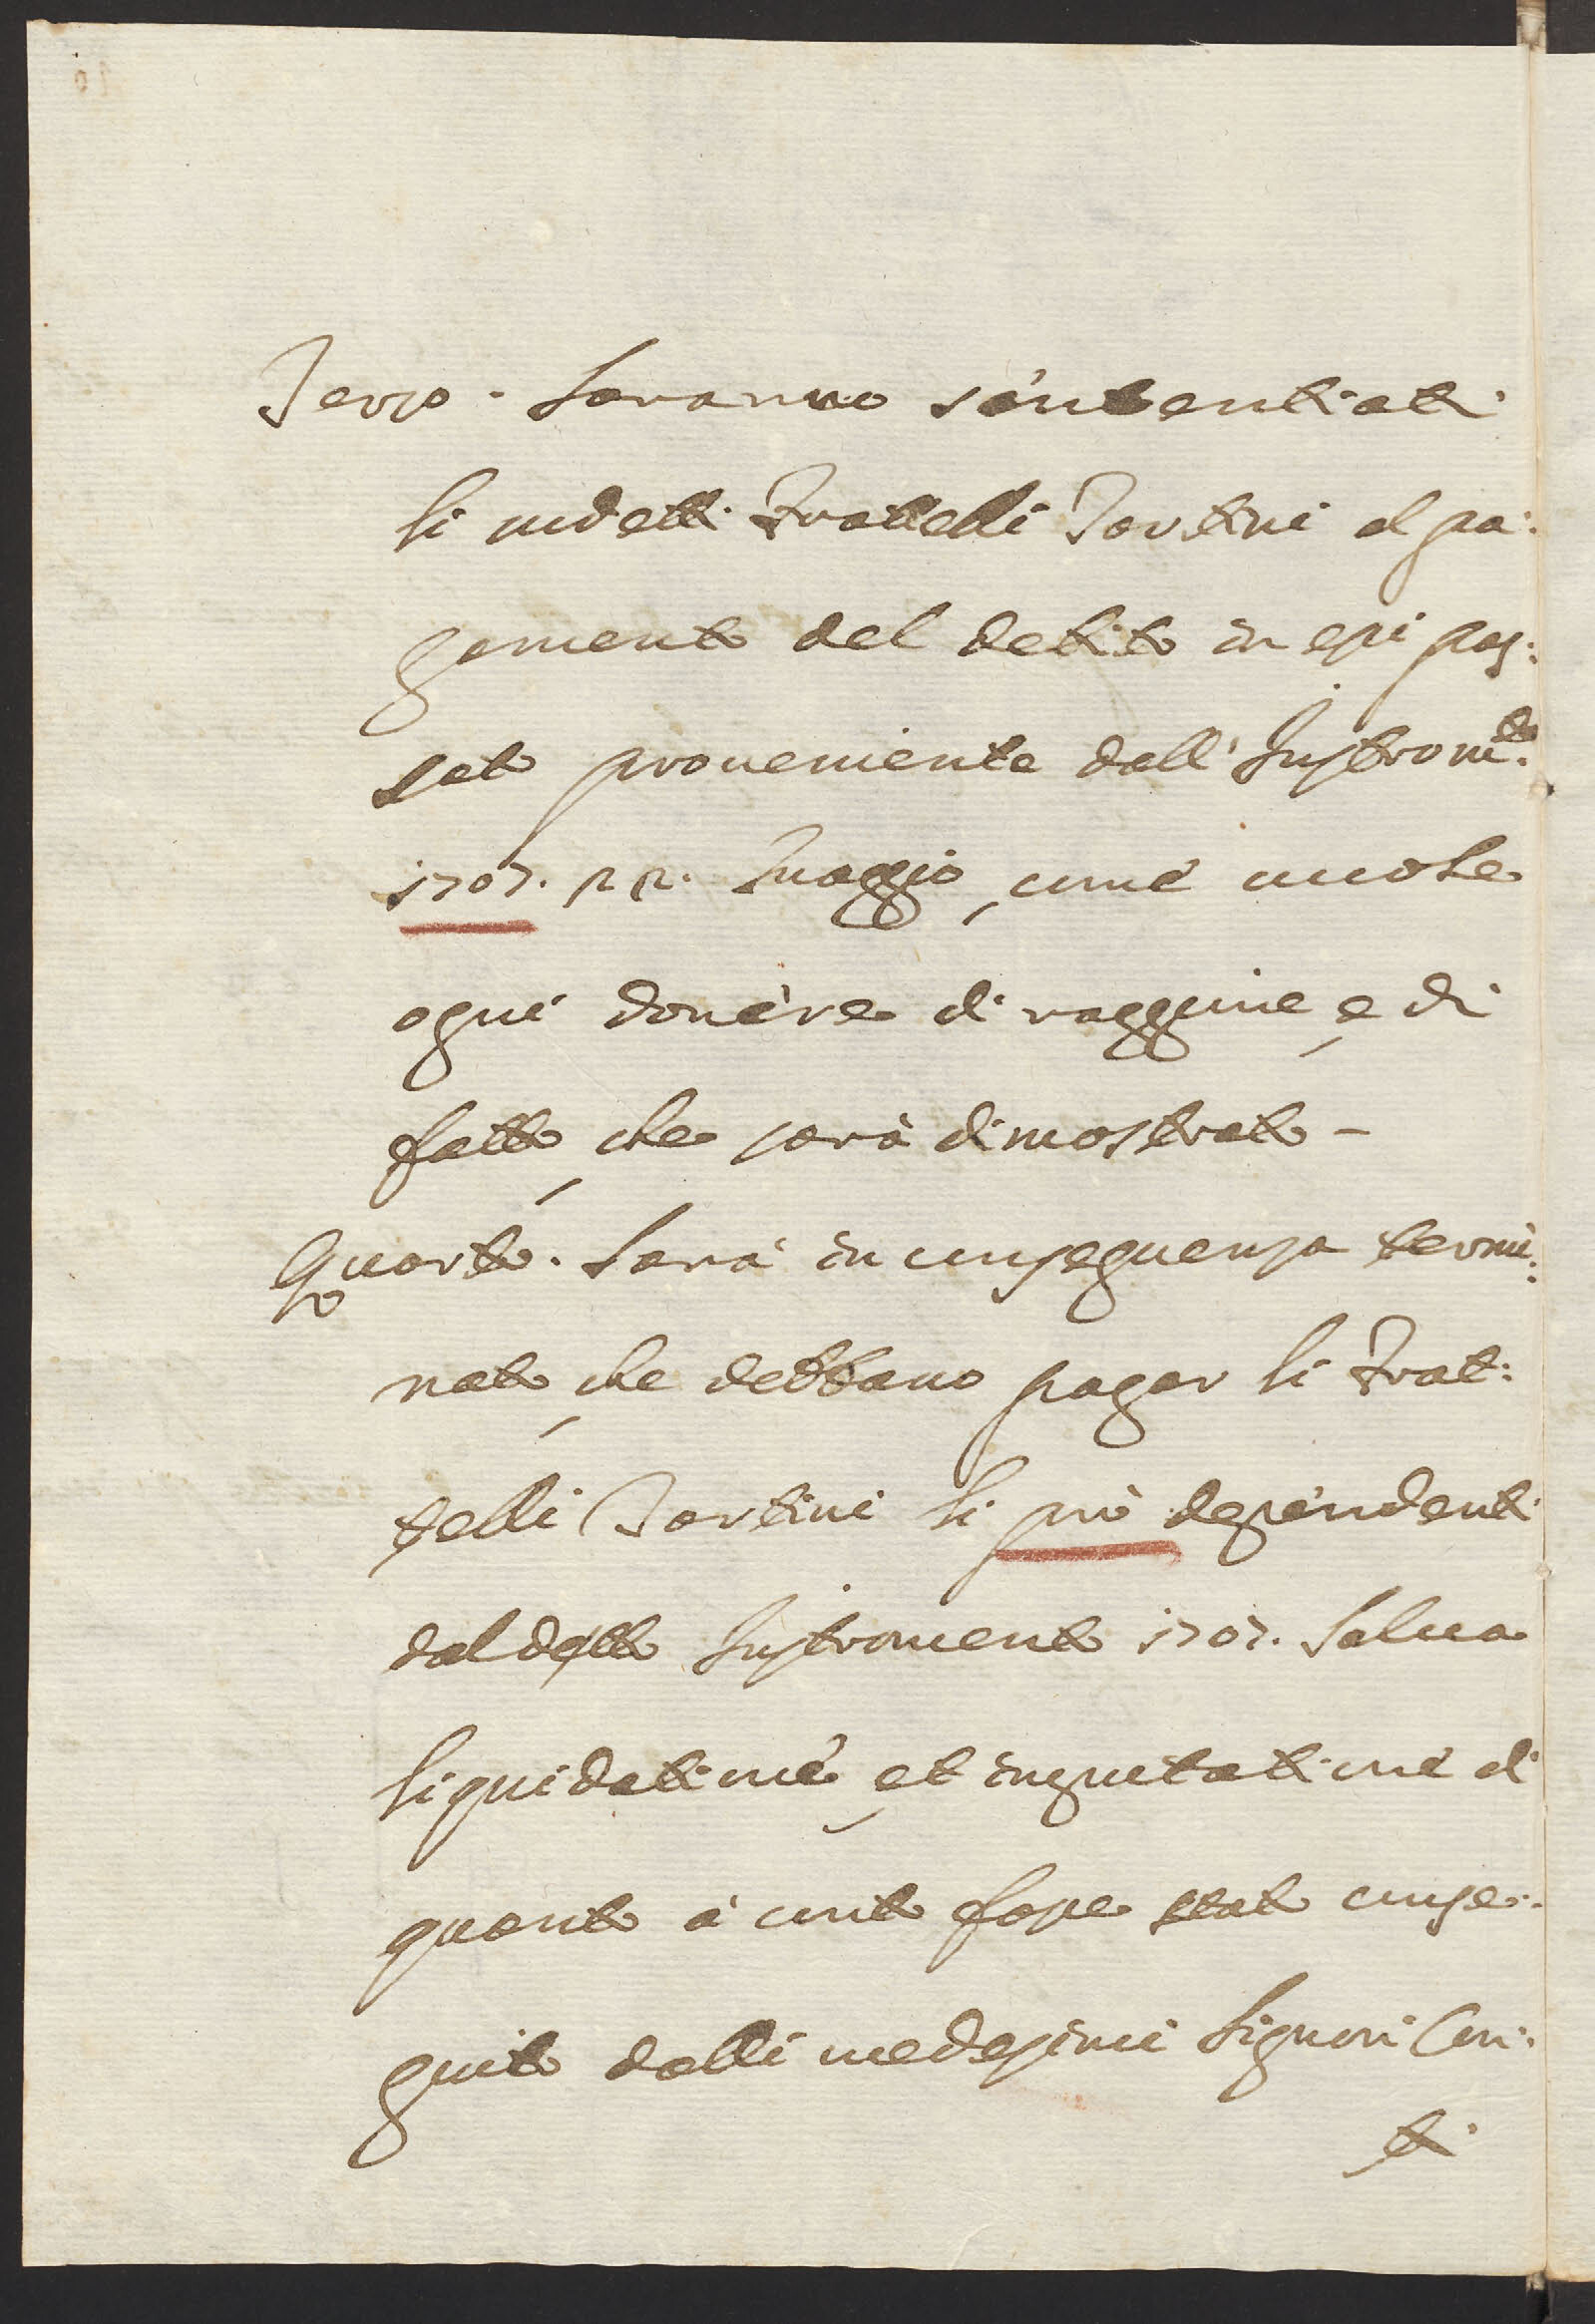 Terzo. Saranno sententiati
li sudetti Fratelli Tartini al pa:
gamento del debito in essi pas:
sato proueniente dall' Instrom.to
1707. 22. Maggio, come uuole
ogni douere di raggione, e di
fatto, che sarà dimostrato -
Quarto. Sarà in conseguenza termi:
nato, che debbano pagar li Frat:
telli Tartini li prò dependenti
dal detto Instromento 1707. Salua
liquidatione, et imputatione di
quanto à conto fosse stato conse:
guito dalli medesimi Signori Con:
ti